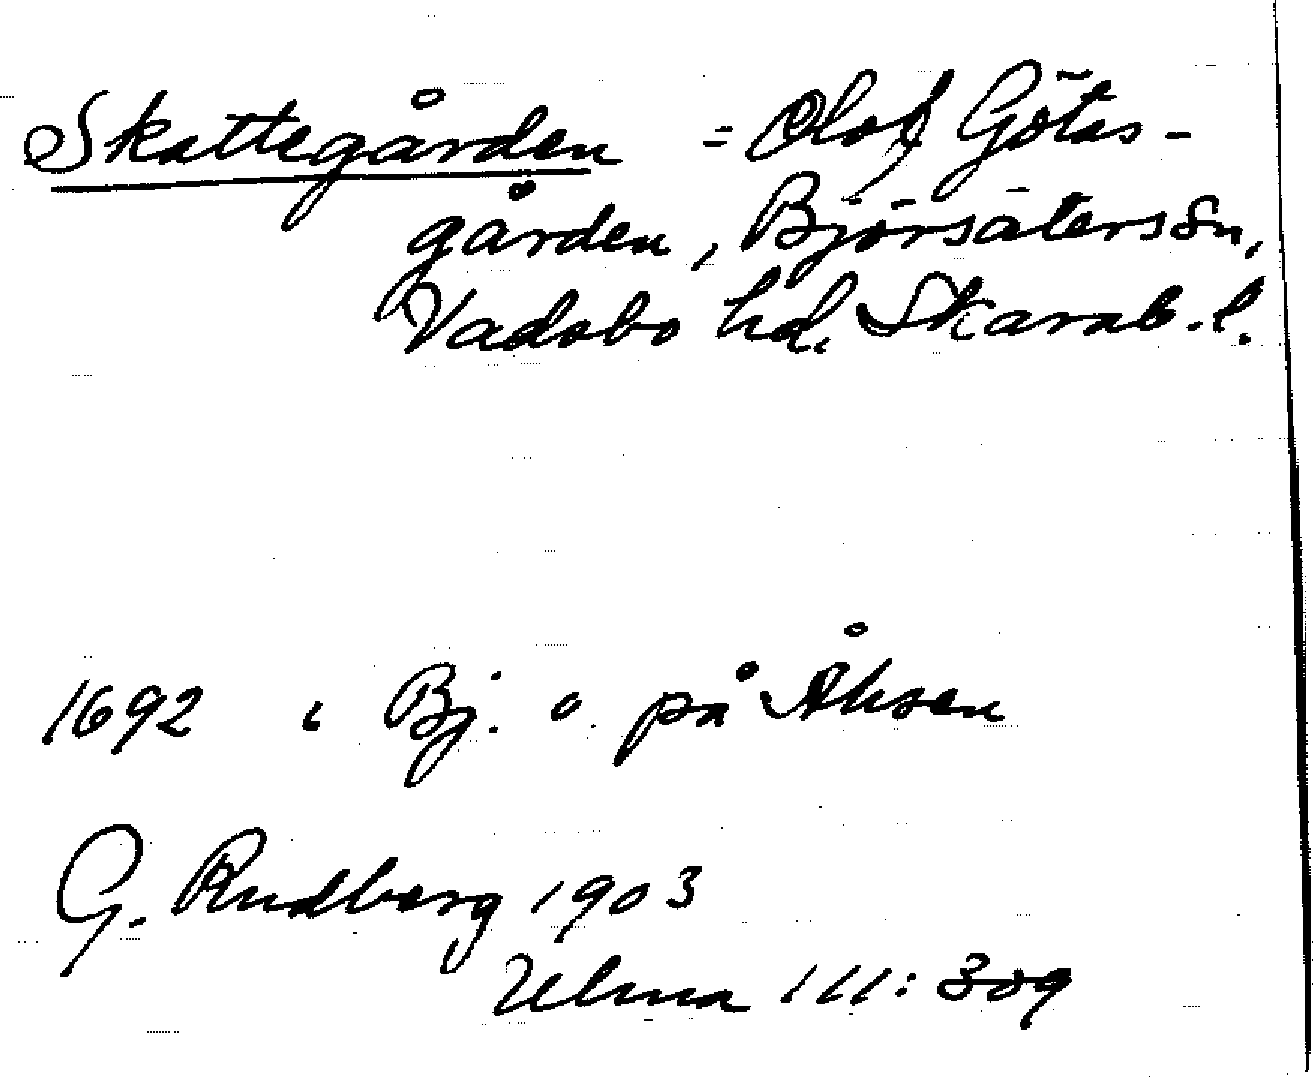 Skattegården = Olof Götas-
gården, Björsäters sn,
Vadsbo hd. Skarab. l.
1692 i Bj. o. på Åhsen
G. Rudberg 1903
Ulma 111: 309